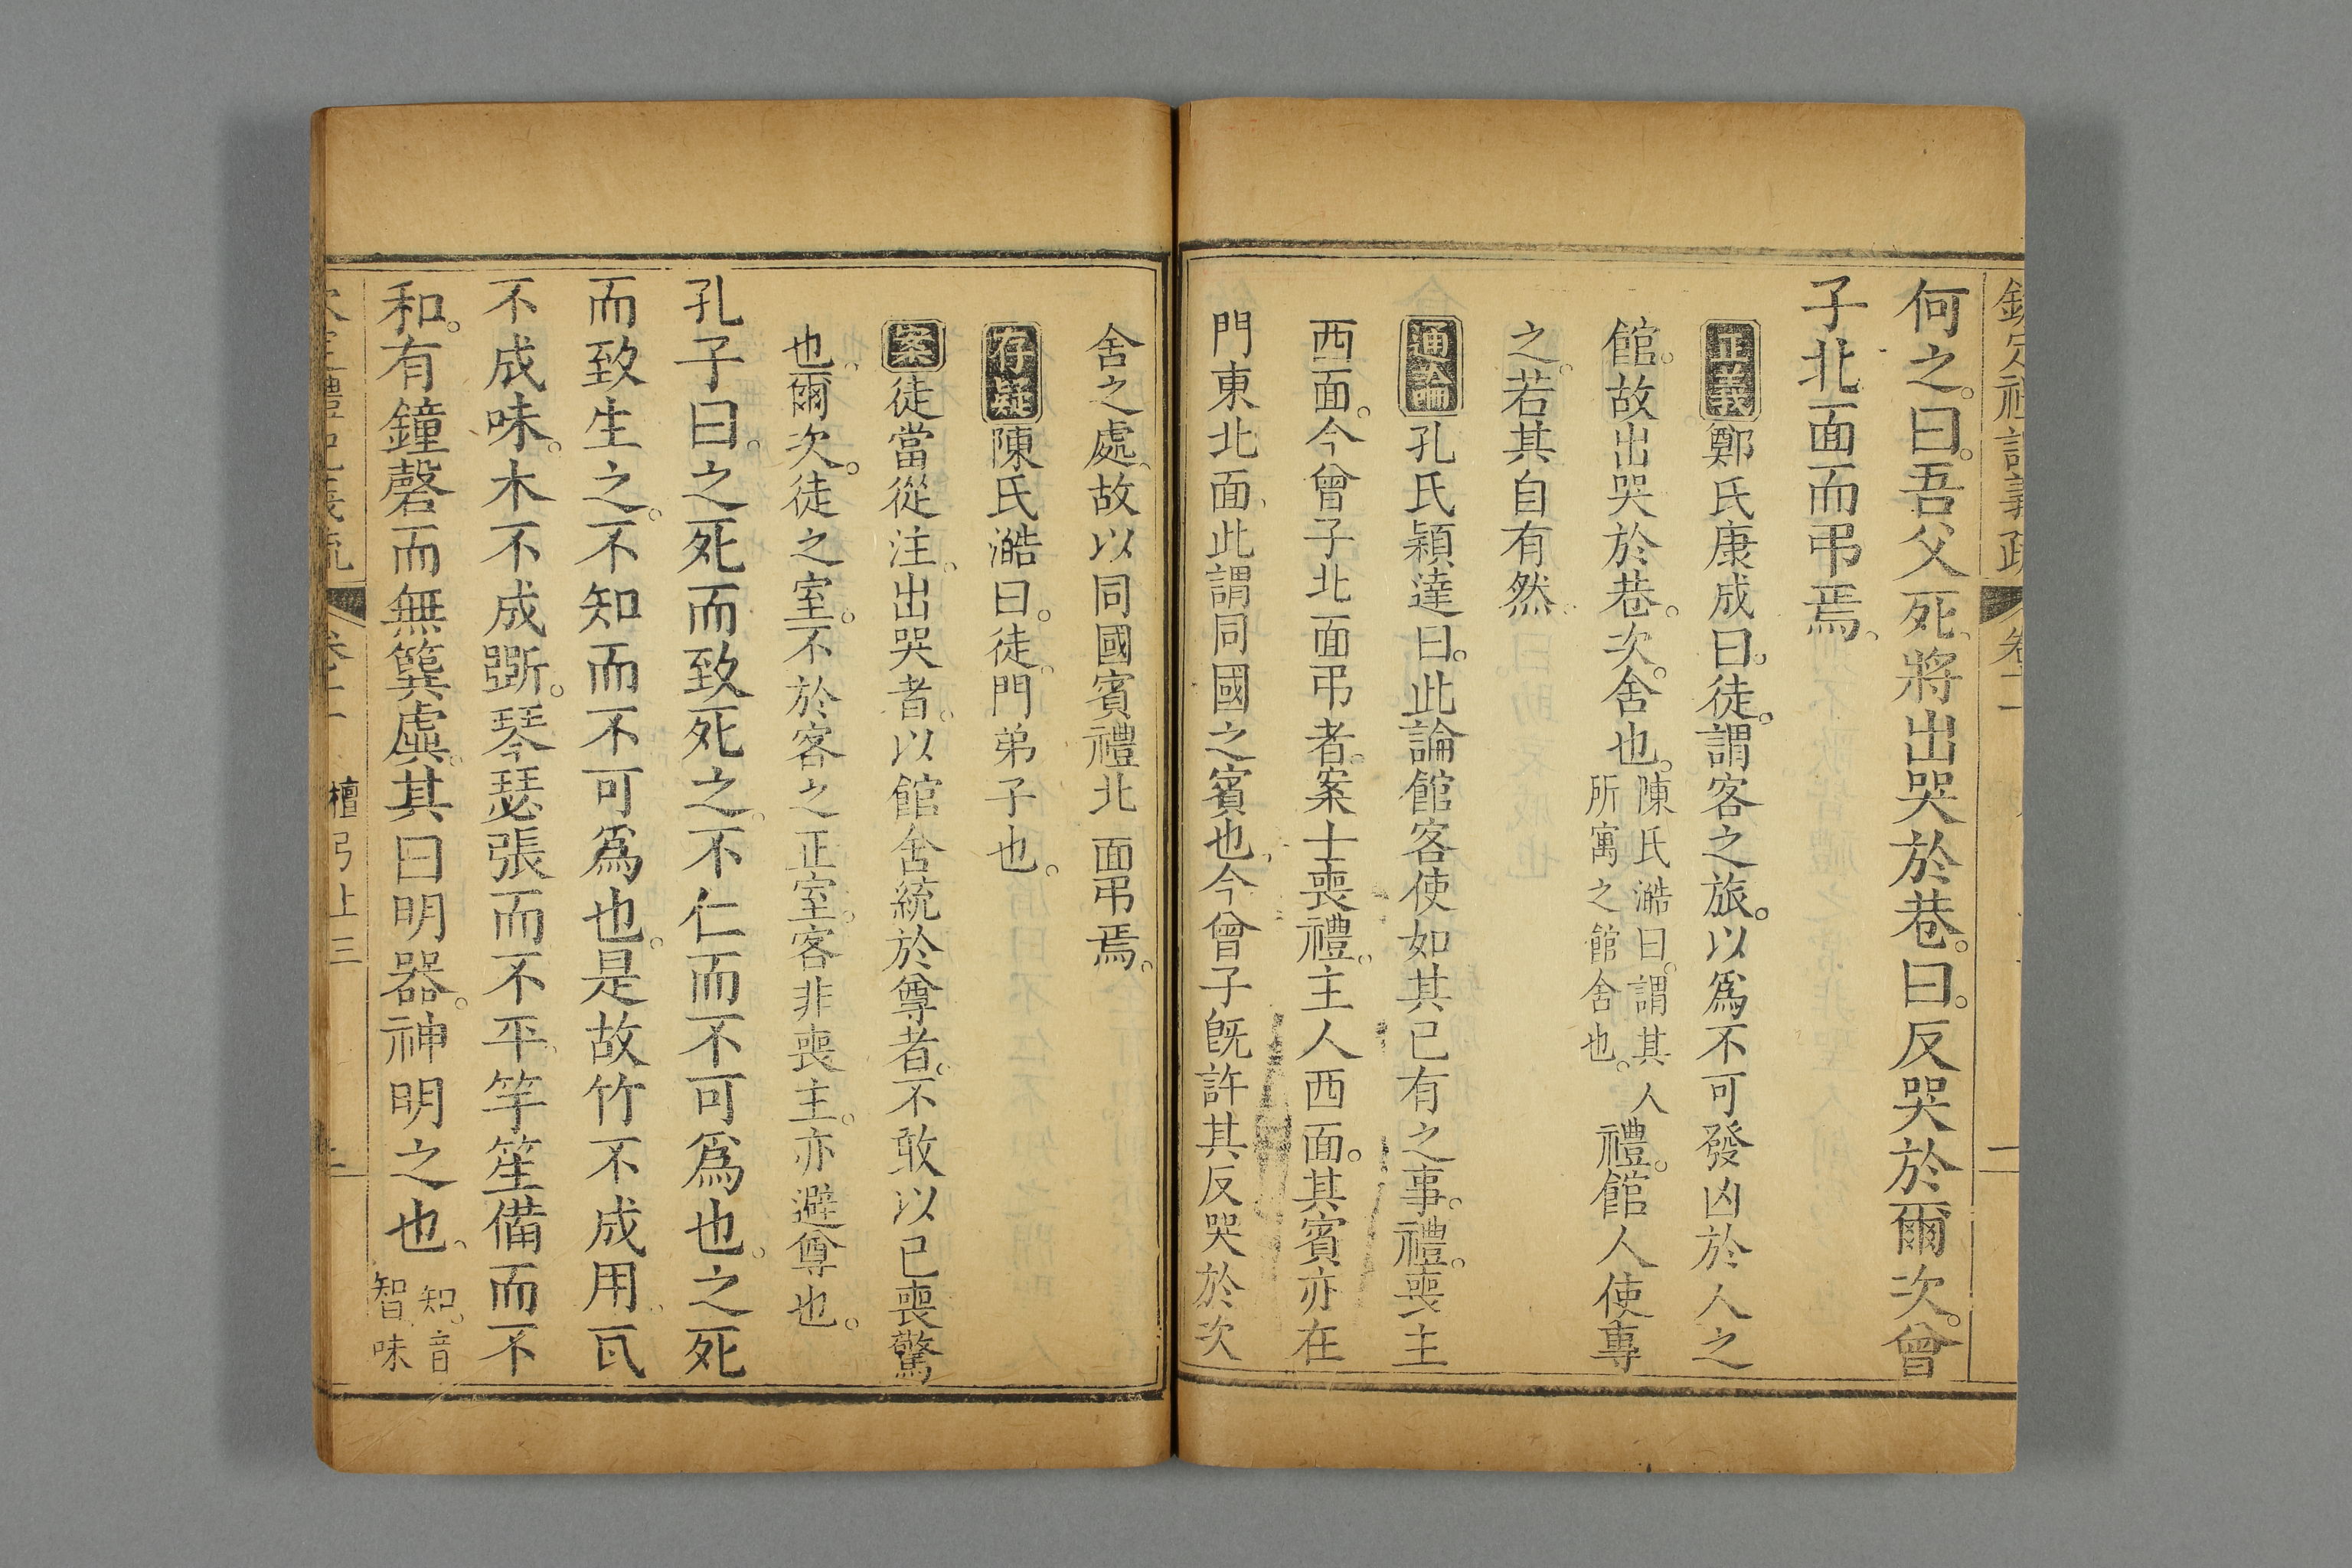 欽定禮記義疏 卷十一
何之。曰。吾父死。將出哭於巷。曰。反哭於爾次。曾
子北面而弔焉。
正義鄭氏康成曰。徒。謂客之旅。以爲不可發凶於人之
館。故出哭於巷。次。舍也。陳氏澔曰。謂其人所寓之館舍也。禮。館人使專
之。若其自有然。
通論孔氏穎達曰。此論館客使如其已有之事。禮。喪主
西面。今曾子北面弔者。案士喪禮。主人西面。其賓亦在
門東北面。此謂同國之賓也。今曾子旣許其反哭於次
舍之處。故以同國賓禮北面弔焉。
存疑陳氏澔曰。徒。門弟子也。
案徒當從注。出哭者。以館舍統於尊者。不敢以已喪驚
也。爾次。徒之室。不於客之正室。客非喪主。亦避尊也。
孔子曰。之死而致死之。不仁而不可爲也。之死
而致生之。不知而不可爲也。是故竹不成用。瓦
不成味。木不成斲。琴瑟張而不平。竽笙備而不
和。有鐘磬而無簨虡。其曰明器。神明之也。知。音智。味
欽定禮記義疏 卷十一 檀弓上三